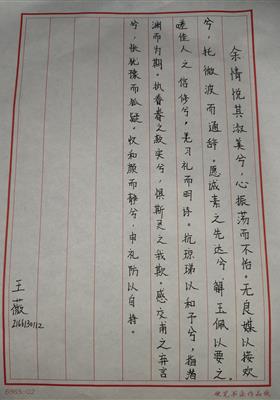 余情悦其淑美兮，心振荡而不怡。无良媒以接欢
兮，托微波而通辞。愿诚素之先达兮，解玉佩以要之。
嗟佳人之信修兮，羌习礼而明诗。抗琼珶以和予兮，指潜
渊而为期。执眷眷之款实兮，惧斯灵之我欺。感交甫之弃言
兮，怅犹豫而狐疑。收和颜而静兮，申礼防以自持。
王薇
2166130112
硬笔书法作品纸